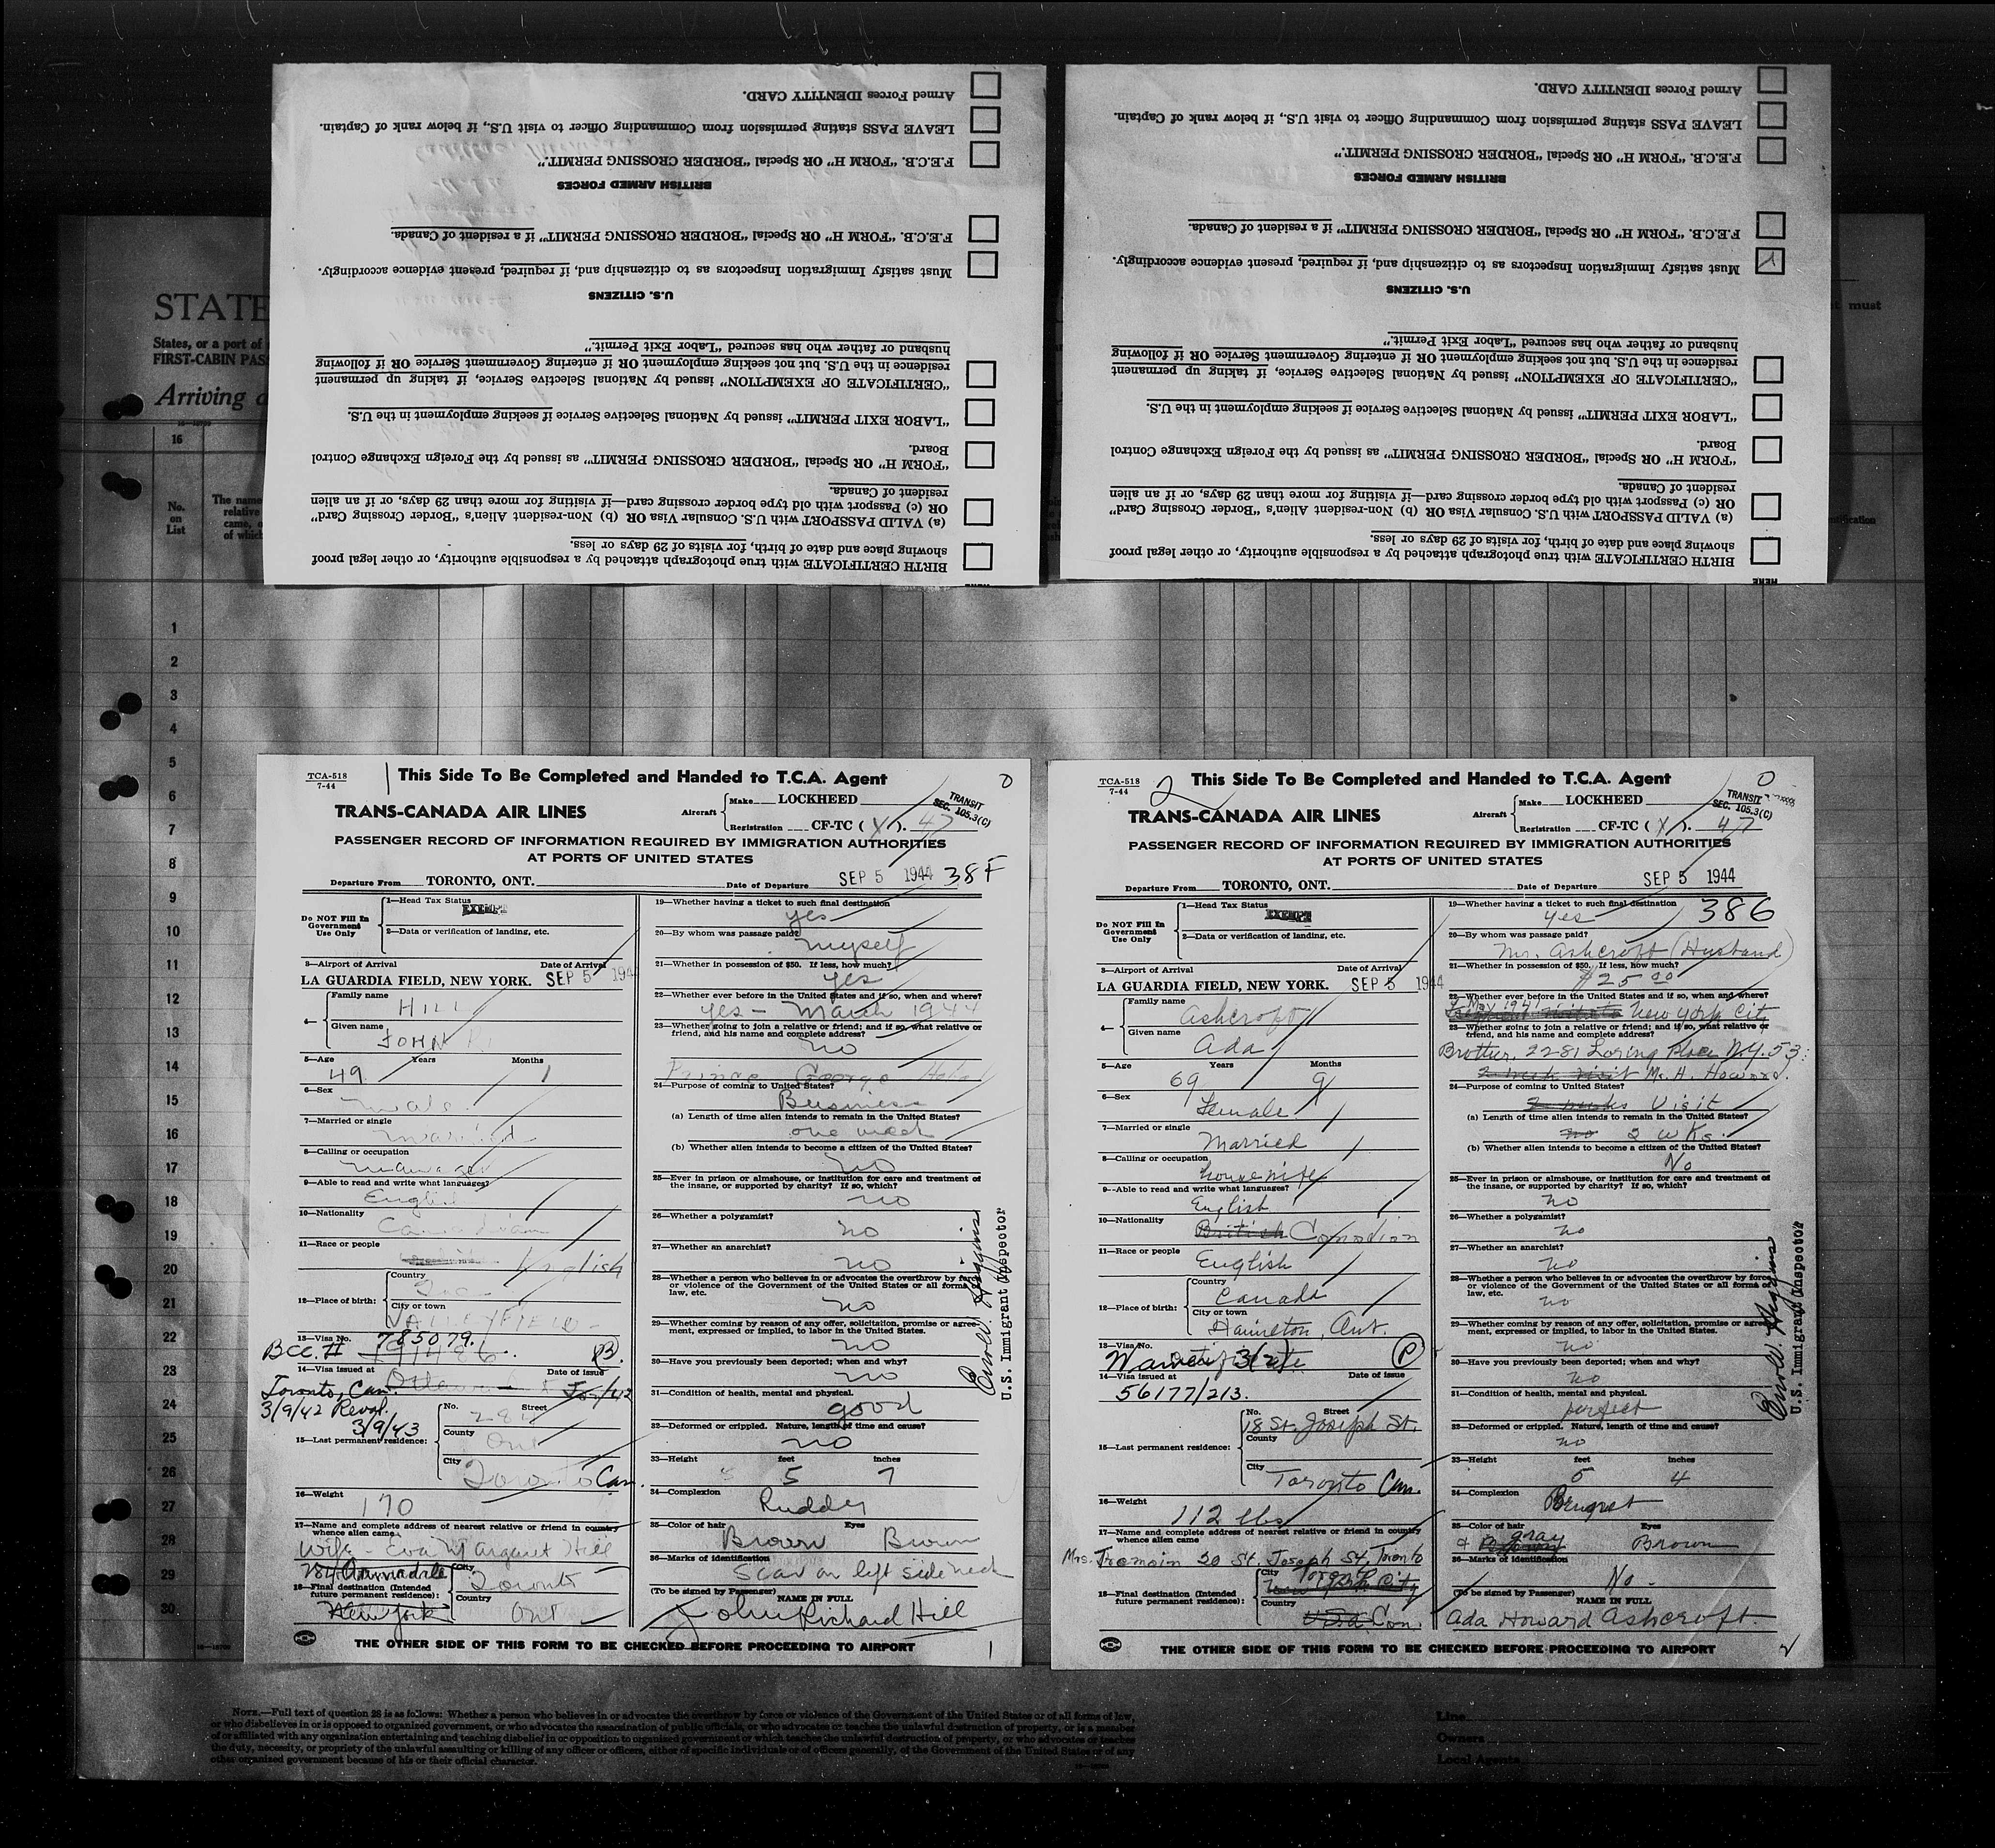 Armed Forces IDENTITY CARD.
LEAVE PASS stating permission from Commanding Officer to visit U.S., if below rank of Captain.
F.E.C.B. "FORM H" OR Special "BORDER CROSSING PERMIT."
BRITISH ARMED FORCES
F.E.C.B. "FORM H" OR Special "BORDER CROSSING PERMIT" if a resident of Canada.
Must satisfy Immigration Inspectors as to citizenship and, if required, present evidence accordingly.
U.S. CITIZENS
husband or father who has secured "Labor Exit Permit."
residence in the U.S. but not seeking employment OR if entering Government Service OR if following
"CERTIFICATE OF EXEMPTION" issued by National Selective Service, if taking up permanent
"LABOR EXIT PERMIT" issued by National Selective Service if seeking employment in the U.S.
Board.
"FORM H" OR Special "BORDER CROSSING PERMIT" as issued by the Foreign Exchange Control
resident of Canada.
OR (c) Passport with old type border crossing card—if visiting for more than 29 days, or if an alien
(a) VALID PASSPORT with U.S. Consular Visa OR (b) Non-resident Alien's "Border Crossing Card"
showing place and date of birth, for visits of 29 days or less.
BIRTH CERTIFICATE with true photograph attached by a responsible authority, or other legal proof
HERE
Armed Forces IDENTITY CARD.
LEAVE PASS stating permission from Commanding Officer to visit U.S., if below rank of Captain.
F.E.C.B. "FORM H" OR Special "BORDER CROSSING PERMIT."
BRITISH ARMED FORCES
F.E.C.B. "FORM H" OR Special "BORDER CROSSING PERMIT" if a resident of Canada.
Must satisfy Immigration Inspectors as to citizenship and, if required, present evidence accordingly.
U.S. CITIZENS
husband or father who has secured "Labor Exit Permit."
residence in the U.S. but not seeking employment OR if entering Government Service OR if following
"CERTIFICATE OF EXEMPTION" issued by National Selective Service, if taking up permanent
"LABOR EXIT PERMIT" issued by National Selective Service if seeking employment in the U.S.
Board.
"FORM H" OR Special "BORDER CROSSING PERMIT" as issued by the Foreign Exchange Control
resident of Canada.
OR (c) Passport with old type border crossing card—if visiting for more than 29 days, or if an alien
(a) VALID PASSPORT with U.S. Consular Visa OR (b) Non-resident Alien's "Border Crossing Card"
showing place and date of birth, for visits of 29 days or less.
BIRTH CERTIFICATE with true photograph attached by a responsible authority, or other legal proof
HERE
STATE
States, or a port of
FIRST-CABIN PAS
Arriving
must
16
No.
on
List
The name
relative
came,
of which
1
2
3
4
5
6
7
8
9
10
11
12
13
14
15
16
17
18
19
20
21
22
23
24
25
26
27
28
29
30
TCA-518
7-44
1
This Side To Be Completed and Handed to T.C.A. Agent
0
TRANS-CANADA AIR LINES
Aircraft
Make LOCKHEED
Registration CF-TC ( X ). 47
TRANSIT
SEC. 105.3(C)
PASSENGER RECORD OF INFORMATION REQUIRED BY IMMIGRATION AUTHORITIES
AT PORTS OF UNITED STATES
Departure From TORONTO, ONT. Date of Departure SEP 5 1944 38F
Do NOT Fill In
Government
Use Only
1—Head Tax Status
EXEMPT
2—Data or verification of landing, etc.
3—Airport of Arrival Date of Arrival
LA GUARDIA FIELD, NEW YORK. SEP 5 194
4—
Family name
HILL
Given name
JOHN
5—Age Years Months
49 1
6—Sex
male
7—Married or single
married
8—Calling or occupation
manager
9—Able to read and write what languages?
English
10—Nationality
Canadian
11—Race or people
English
12—Place of birth:
Country
City or town
VALLEYFIELD
13—Visa No. 785079.
BCC. # B.
14—Visa issued at Date of issue
Ottawa
Toronto, Can
3/9/42 Reval.
3/9/43
15—Last permanent residence:
No. Street
County
Ont
City
Toronto Can.
16—Weight
170
17—Name and complete address of nearest relative or friend in country
whence alien came
Wife - Eva Margaret Hill
18—Final destination (Intended
future permanent residence):
City
Toronto
Country
Ont
New York
19—Whether having a ticket to such final destination
yes
20—By whom was passage paid?
myself
21—Whether in possession of $50. If less, how much?
yes
22—Whether ever before in the United States and if so, when and where?
yes - March 1944
23—Whether going to join a relative or friend; and if so, what relative or
friend, and his name and complete address?
no
Prince George Hotel
24—Purpose of coming to United States?
Business
(a) Length of time alien intends to remain in the United States?
one week
(b) Whether alien intends to become a citizen of the United States?
no
25—Ever in prison or almshouse, or institution for care and treatment of
the insane, or supported by charity? If so, which?
no
26—Whether a polygamist?
no
27—Whether an anarchist?
no
28—Whether a person who believes in or advocates the overthrow by force
or violence of the Government of the United States or all forms of
law, etc.
no
29—Whether coming by reason of any offer, solicitation, promise or agree-
ment, expressed or implied, to labor in the United States?
no
30—Have you previously been deported; when and why?
no
31—Condition of health, mental and physical.
good
32—Deformed or crippled. Nature, length of time and cause?
no
33—Height feet inches
5 7
34—Complexion
Ruddy
35—Color of hair Eyes
Brown Brown
36—Marks of identification
Scar on left side neck
(To be signed by Passenger) NAME IN FULL
John Richard Hill
U.S. Immigrant Inspector
THE OTHER SIDE OF THIS FORM TO BE CHECKED BEFORE PROCEEDING TO AIRPORT
1
TCA-518
7-44
2
This Side To Be Completed and Handed to T.C.A. Agent
0
TRANS-CANADA AIR LINES
Aircraft
Make LOCKHEED
Registration CF-TC ( X ). 47
TRANSIT
SEC. 105.3(C)
PASSENGER RECORD OF INFORMATION REQUIRED BY IMMIGRATION AUTHORITIES
AT PORTS OF UNITED STATES
Departure From TORONTO, ONT. Date of Departure SEP 5 1944
Do NOT Fill In
Government
Use Only
1—Head Tax Status
EXEMPT
2—Data or verification of landing, etc.
3—Airport of Arrival Date of Arrival
LA GUARDIA FIELD, NEW YORK. SEP 5 1944
4—
Family name
Ashcroft
Given name
Ada
5—Age Years Months
69 9
6—Sex
Female
7—Married or single
Married
8—Calling or occupation
housewife
9—Able to read and write what languages?
English
10—Nationality
British Canadian
11—Race or people
English
12—Place of birth:
Country
Canada
City or town
Hamilton, Ont.
13—Visa No.
P
14—Visa issued at Date of issue
56177/213.
15—Last permanent residence:
No. Street
18 St. Joseph St.
County
City
Toronto Can.
16—Weight
112 lbs
17—Name and complete address of nearest relative or friend in country
whence alien came
Mrs. Tremain 20 St. Joseph St, Toronto
18—Final destination (Intended
future permanent residence):
City
Toronto
New York City
Country
USA Can.
19—Whether having a ticket to such final destination
yes 386
20—By whom was passage paid?
Mr. Ashcroft (Husband)
21—Whether in possession of $50. If less, how much?
$25.00
22—Whether ever before in the United States and if so, when and where?
May 1941 New York City
23—Whether going to join a relative or friend; and if so, what relative or
friend, and his name and complete address?
Brother, 2281 Loring Place N.Y. 53.
2 week visit Mr. H. Howard.
24—Purpose of coming to United States?
2 weeks Visit
(a) Length of time alien intends to remain in the United States?
no 2 wks.
(b) Whether alien intends to become a citizen of the United States?
No
25—Ever in prison or almshouse, or institution for care and treatment of
the insane, or supported by charity? If so, which?
no
26—Whether a polygamist?
no
27—Whether an anarchist?
no
28—Whether a person who believes in or advocates the overthrow by force
or violence of the Government of the United States or all forms of
law, etc.
no
29—Whether coming by reason of any offer, solicitation, promise or agree-
ment, expressed or implied, to labor in the United States?
no
30—Have you previously been deported; when and why?
no
31—Condition of health, mental and physical.
perfect
32—Deformed or crippled. Nature, length of time and cause?
no
33—Height feet inches
5 4
34—Complexion
35—Color of hair Eyes
gray Brown
36—Marks of identification
No.
(To be signed by Passenger) NAME IN FULL
Ada Howard Ashcroft
U.S. Immigrant Inspector
THE OTHER SIDE OF THIS FORM TO BE CHECKED BEFORE PROCEEDING TO AIRPORT
2
NOTE.—Full text of question 28 is as follows: Whether a person who believes in or advocates the overthrow by force or violence of the Government of the United States or of all forms of law,
or who disbelieves in or is opposed to organized government, or who advocates the assassination of public officials, or who advocates or teaches the unlawful destruction of property, or is a member
of or affiliated with any organization entertaining and teaching disbelief in or opposition to organized government or which teaches the unlawful destruction of property, or who advocates or teaches
the duty, necessity, or propriety of the unlawful assaulting or killing of any officer or officers, either of specific individuals or of officers generally, of the Government of the United States or of any
other organized government because of his or their official character.
Line
Owners
Local Agents